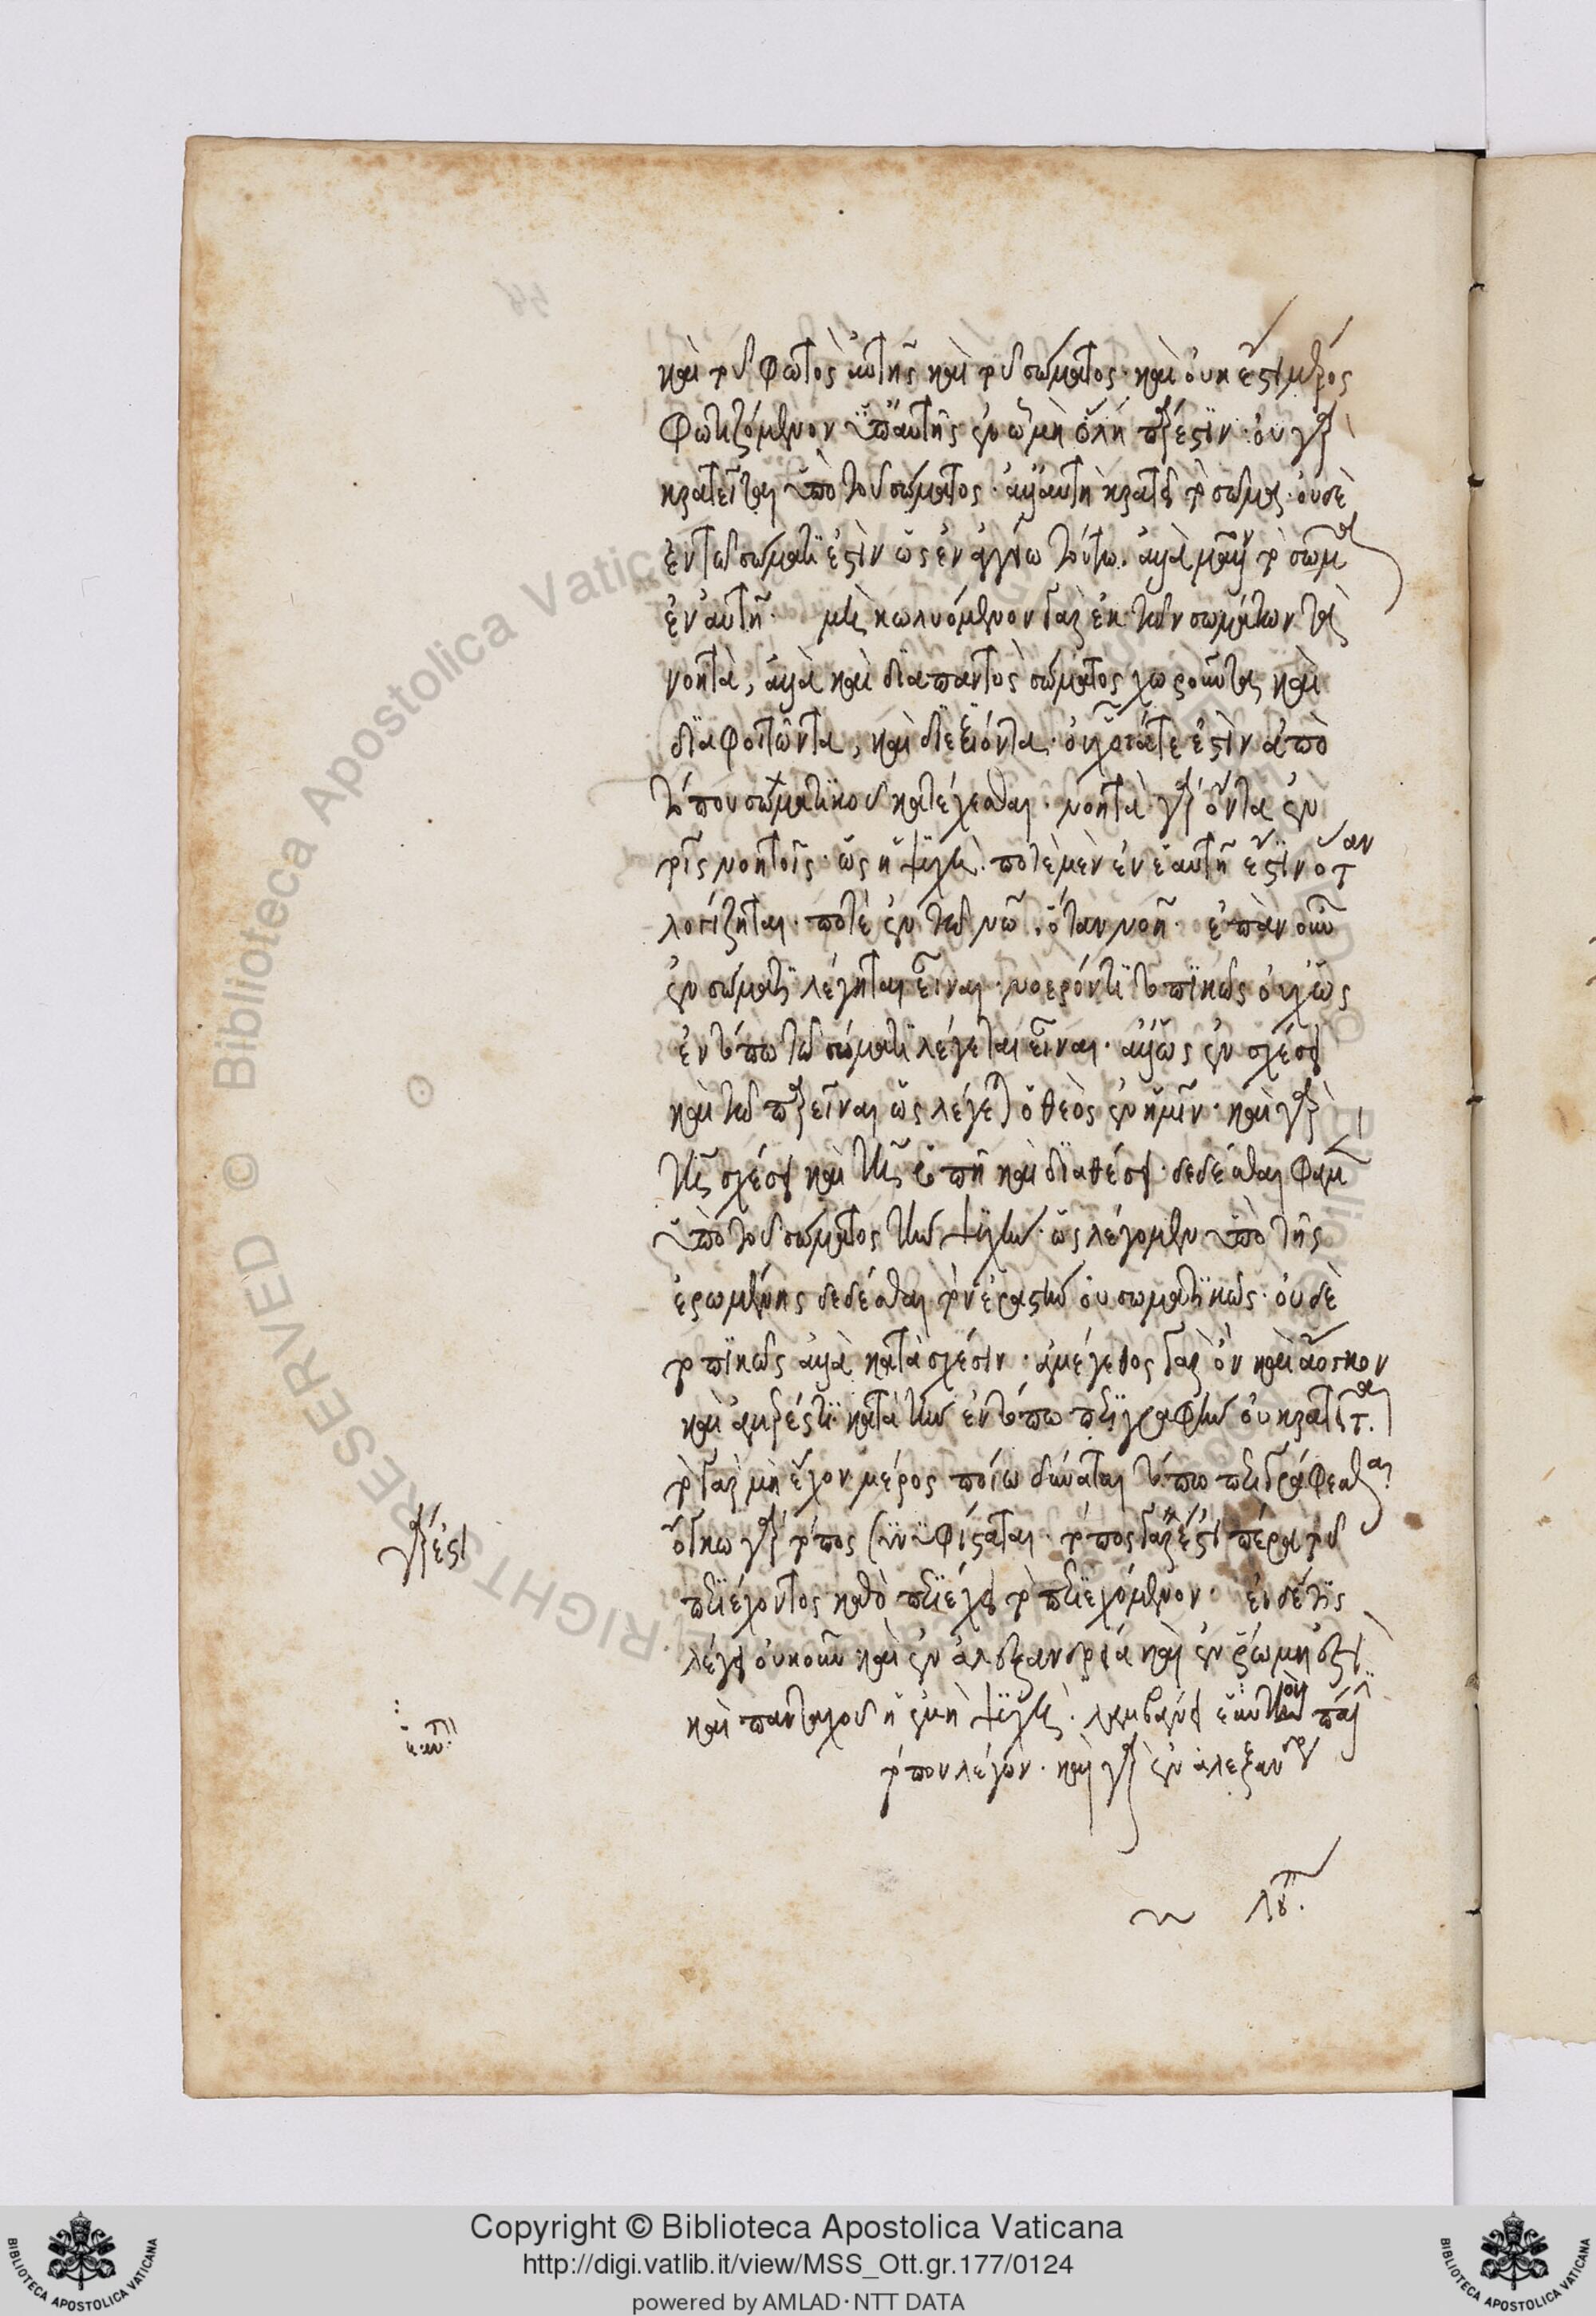 καὶ τοῦ φωτὸς αὐτῆς καὶ τοῦ σώματος· καὶ οὐκ ἔστι μέρος
φωτιζόμενον ὑπ' αὐτῆς ἐν ᾧ μὴ ὅλη πάρεστιν· οὐ γὰρ
κρατεῖται ὑπὸ τοῦ σώματος· ἀλλ' αὐτὴ κρατεῖ τὸ σῶμα· οὐδὲ
ἐν τῶ σώματι ἐστὶν ὡς ἐν ἀγγείω τούτω· ἀλλὰ μᾶλλον τὸ σῶμα
ἐν αὐτῆ· μὴ κωλυόμενον γὰρ ἐκ τῶν σωμάτων τὰ
νοητὰ, ἀλλὰ καὶ διὰ παντὸς σώματος χωροῦντα καὶ
διαφοιτῶντα, καὶ διεξιόντα· οὐχ οἷά τε ἐστὶν ἀπὸ
τόπου σωματικοῦ κατέχεσθαι· νοητὰ γὰρ ὄντα ἐν
τοῖς νοητοῖς· ὡς ἡ ψυχὴ· ποτὲ μὲν ἐν ἑαυτῆ ἐστὶν ὅταν
λογίζηται· ποτὲ ἐν τῶ νῶ· ὅταν νοῆ· ἐπὰν οὖν
ἐν σώματι λέγηται εἶναι· οὐχ ὡς
ἐν τόπω τῶ σώματι λέγεται εἶναι· ἀλλ' ὡς ἐν σχέσει
καὶ τῶ παρεῖναι ὡς λέγεται ὁ θεὸς ἐν ἡμῖν· καὶ γὰρ
τῆ σχέσει καὶ τῆ ῥοπῆ καὶ διαθέσει· δεδέσθαι φαμὲν
ὑπὸ τοῦ σώματος τὴν ψυχὴν· ὡς λέγομεν ὑπὸ τῆς
ἐρωμένης δεδέσθαι τὸν ἐραστὴν οὐ σωματικῶς· οὐδὲ
τοπικῶς ἀλλὰ κατὰ σχέσιν· ἀμέγεθος γὰρ ὂν καὶ ἄογκον
καὶ ἀμερές τι κατὰ τὴν ἐν τόπω περιγραφὴν οὐ κρατεῖται·
τὸ γὰρ μὴ ἔχον μέρος ποίω δύναται τόπω περιγράφεσθαι
ὄγκω γὰρ τόπος συνυφίσταται· τόπος γὰρ ἐστὶ πέρας τοῦ
περιέχοντος καθὸ περιέχει τὸ περιεχόμενον· εἰ δέ τις
λέγει οὐκοῦν καὶ ἐν ἀλεξανδρεία καὶ ἐν ῥώμη ἐστὶ
καὶ πανταχοῦ ἡ ἐμὴ ψυχὴ· λανθάνει ἑαυτὸν πάλιν
τόπον λέγων· καὶ γὰρ ἐν ἀλεξανδρ
γὰρ ἐστι